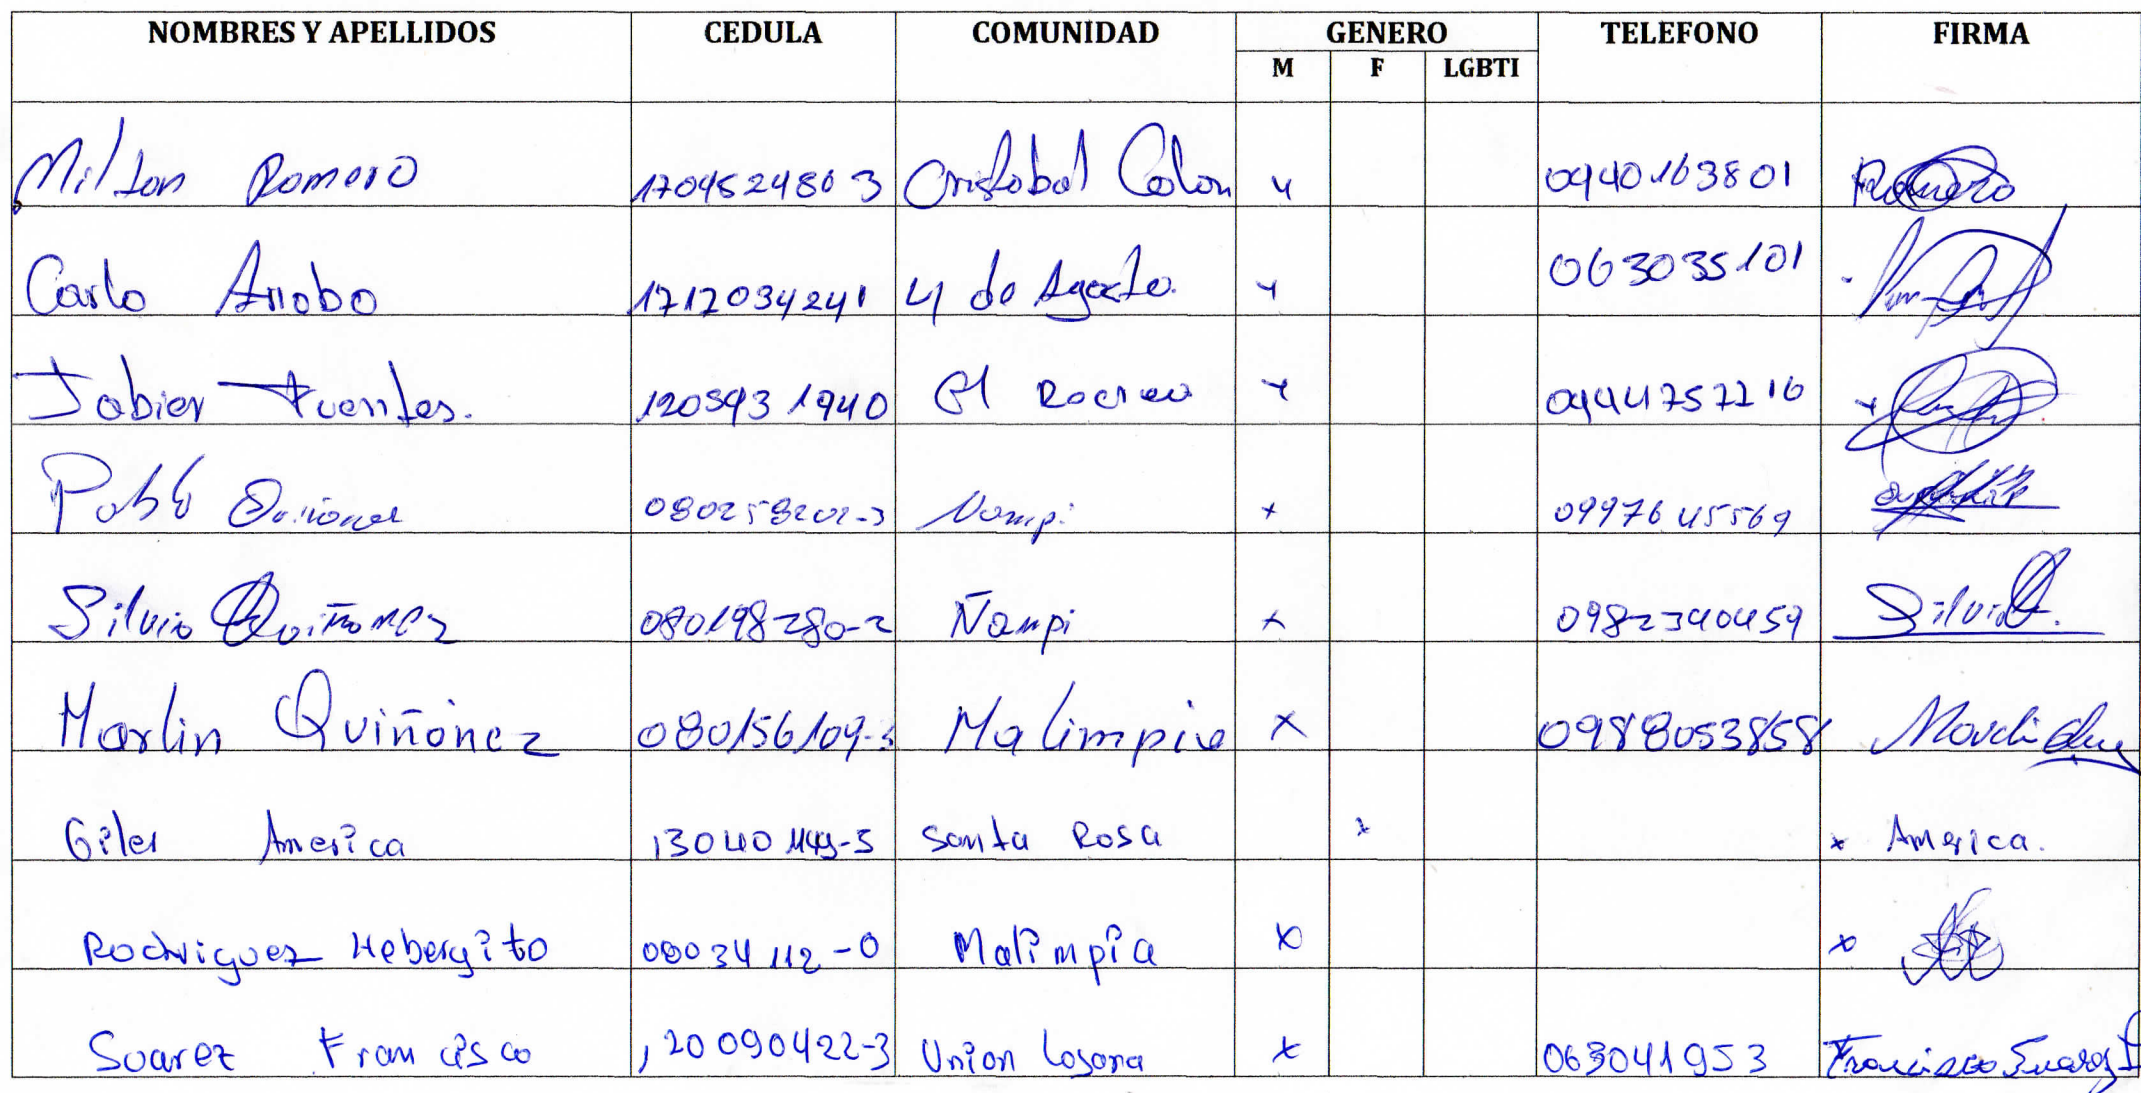 NOMBRES Y APELLIDOS CEDULA COMUNIDAD GENERO TELEFONO FIRMA
M F LGBTI
Milton Romero 170452480 3 Cristobal Colon 0940163801 Romero
Carlo Arrobo 1712034241 4 de Agosto 063035101
Jabier Fuentes. 1205931940 El Recreo 0944757216
Pablo Quiñonez 080258202-3 Ñampi x 0997645569
Silvio Quiñonez 080198280-2 Ñampi x 0982340459 Silvio Q.
Marlin Quiñónez 080156109-3 Malimpia x 0988053858 Marlin
Giler America 13040 1149-5 Santa Rosa x x America.
Rodriguez Hebergito 080034112-0 Malimpia x x
Suarez Francisco 120090422-3 Union Lojana x 063041953 Francisco Suarez